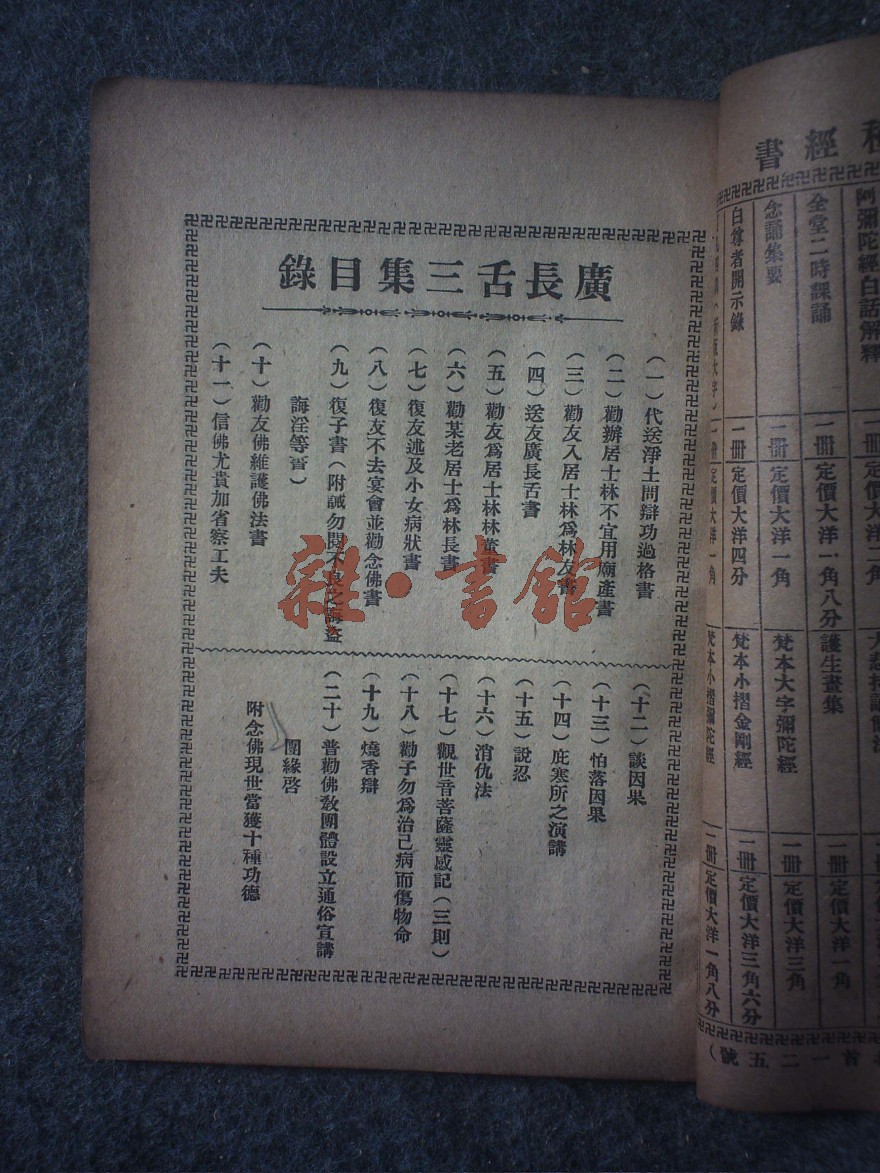 廣長舌三集目錄
(一)代送淨土問辯功過格書
(二)勸辦居士林不宜用廟產書
(三)勸友入居士林為林友書
(四)送友廣長舌書
(五)勸友為居士林林董書
(六)勸某老居士為林長書
(七)復友述及小女病狀書
(八)復友不去宴會並勸念佛書
(九)復子書(附誡勿閱不良之誨盜
誨淫等書)
(十)勸友佛維護佛法書
(十一)信佛尤貴加省察工夫
(十二)談因果
(十三)怕落因果
(十四)庇寒所之演講
(十五)說忍
(十六)消仇法
(十七)觀世音菩薩靈感記(三則)
(十八)勸子勿為治己病而傷物命
(十九)燒香辯
(二十)普勸佛教團體設立通俗宣講
團緣啓
附念佛現世當獲十種功德
雜·書館
經書
阿彌陀經白話解釋 一冊 定價大洋二角
全堂二時課誦 一冊 定價大洋一角八分
護生畫集 一冊 定價大洋一角
念誦集要 一冊 定價大洋一角
梵本大字彌陀經 一冊 定價大洋三角
白尊者開示錄 一冊 定價大洋四分
梵本小摺金剛經 一冊 定價大洋三角六分
定價大洋一角
梵本小摺彌陀經 一冊 定價大洋一角八分
首一二五號)